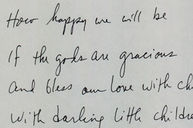 How happy we will be
If the gods are gracious
And bless our love with ch
With darling little childre